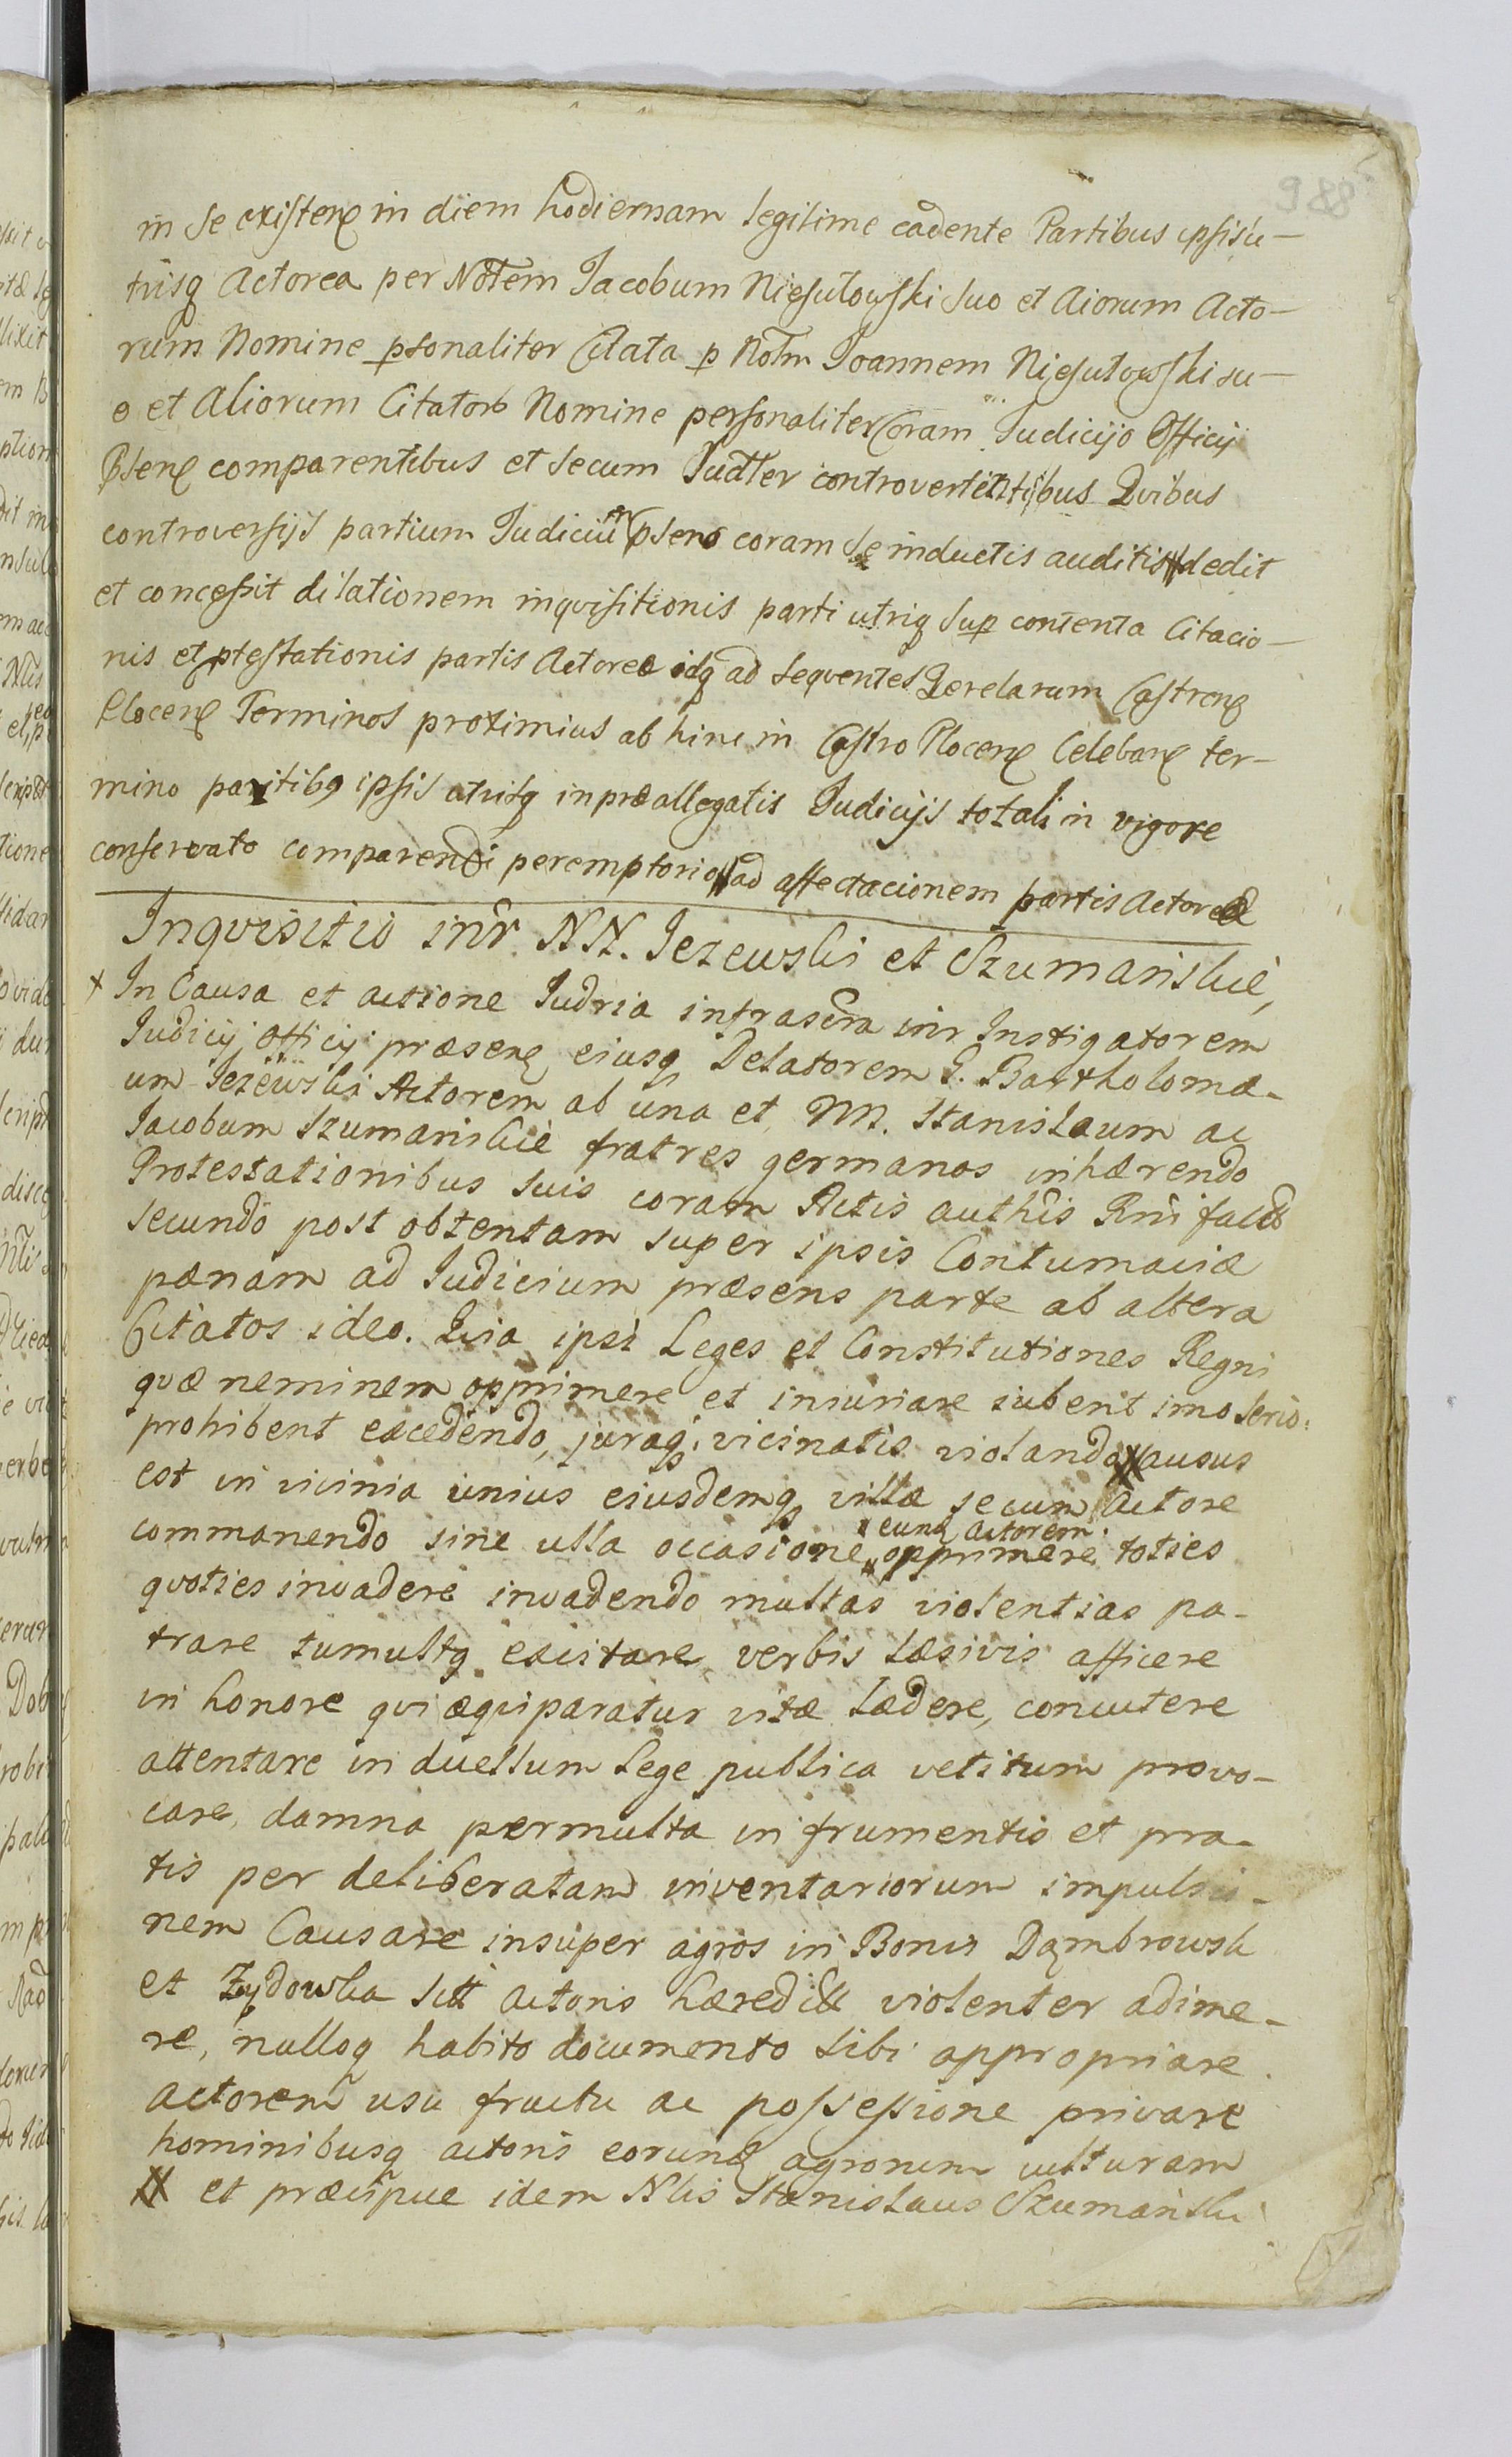 988
in se existen in diem hodiernam legitime cadente Partibus ipsis u-
trisq Actorea per Notem Jacobum Niesułowski suo et Aiorum Acto-
rum Nomine psonaliter Citata p Nobm Joannem Niesułowski su-
o et Aliorum Citatorb Nomine personaliter Coram Judicijo Officij
Psens comparentibus et secum Judtler controvertentibus Qvibus
controversijs partium Judiciū psens coram se inductis auditis dedit
et concessit dilationem inqvisitionis parti utriq sup contenta Citacio-
nis et ptestationis partis Actorea idq ad seqventes Qerelarum Castren
Plocen Terminos proximius ab hinc in Castro Plocen Celebran ter-
mino partibq ipsis utrisq in præallegatis Judicijs totali in vigore
conservato comparendi peremptorio ad affectacionem partis Actorea
Inqvisitio intr NN. Jezewski et Szumanskie,
+ In Causa et actione Judria infrascra intr Instigatorem
Judicij Officij præsens eiusq Delatorem G. Bartholomæ-
um Jezewski Actorem ab una et NN. Stanislaum ac
Jacobum Szumanskie fratres germanos inhærendo
Protestationibus suis coram Actis authis Rni factis
secundo post obtentam super ipsis Contumaciæ
pænam ad Judicium præsens parte ab altera
Citatos ideo. Qvia ipsi Leges et Constitutiones Regni
qvæ neminem opprimere et iniuriare iubent imo serio
prohibent excedendo, juraq vicinatis violando ausus
est in vicinia unius eiusdemq villæ secum Actore
commanendo sine ulla occasione eund actorem opprimere toties
qvoties invadere invadendo multas violentias pa-
trare tumultq excitare verbis læsivis afficere
in honore qvi æqviparatur vitæ lædere, concutere
attentare in duellum Lege publica vetitum provo-
care, damna permulta in frumentis et pra-
tis per deliberatam inventariorum impulsio-
nem Causare insuper agros in Bonis Dąmbrowsk
et Zydowka actoris hæredit violenter adime-
re, nulloq habito documento sibi appropriare
actorem usu fructu ac possessione privare
hominibusq actoris eorund agrorum culturam
et præcipue idem Nlis Stanislaus Szumański